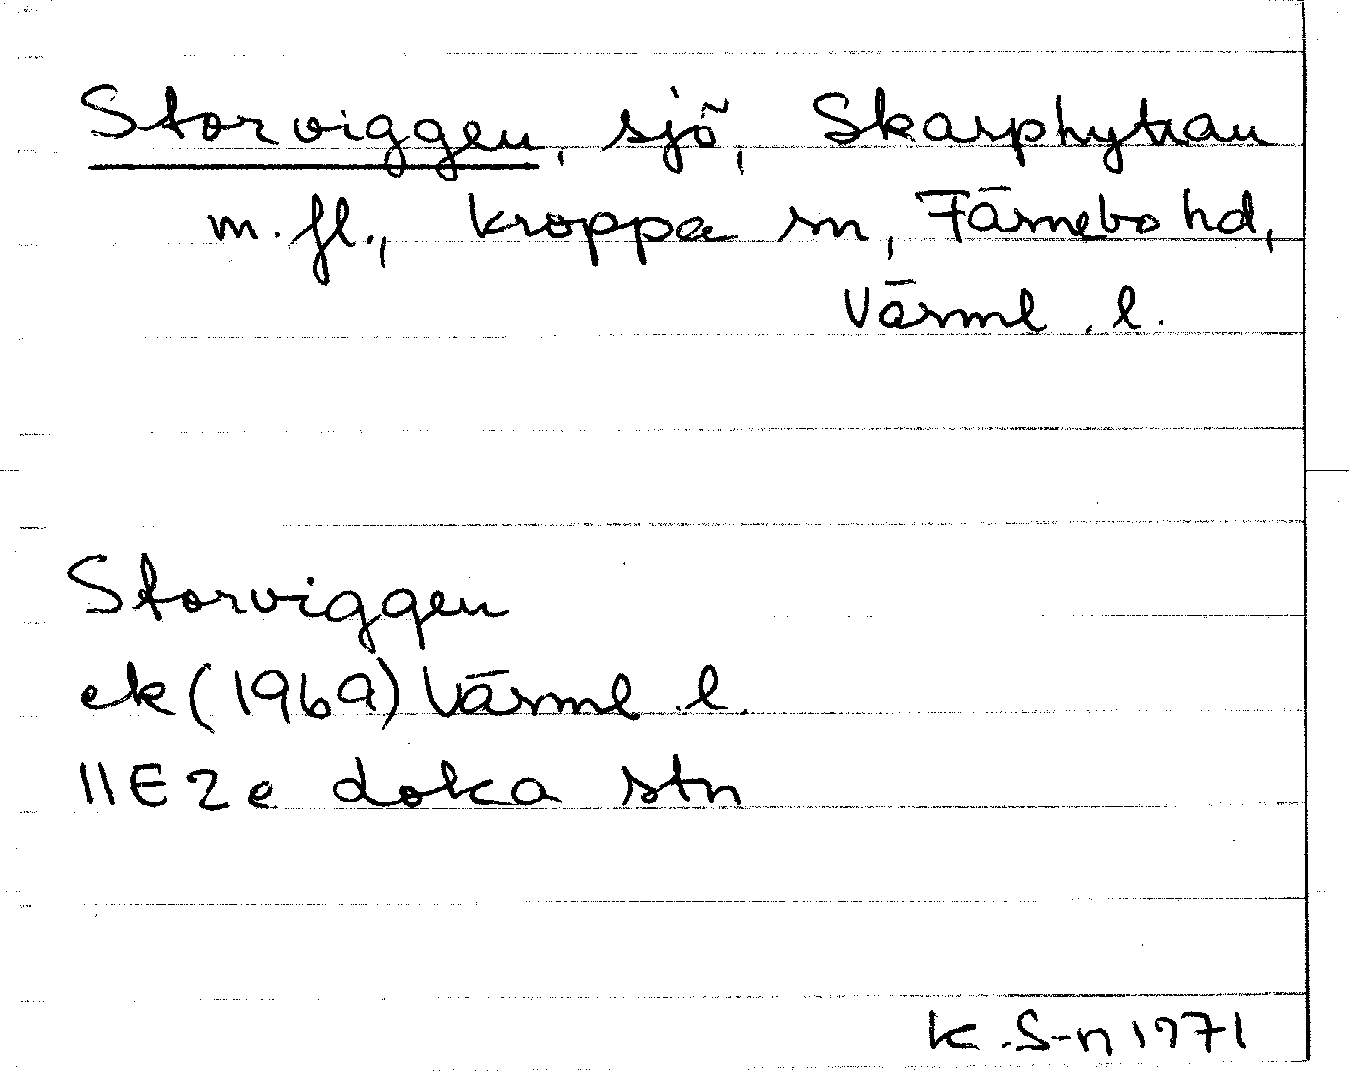 Storviggen, sjö, Skarphyttan
m. fl., Kroppa sn, Färnebo hd,
Värml. l.
Storviggen
ek (1969) Värml. l.
11E2e Loka stn
K. S-n 1971